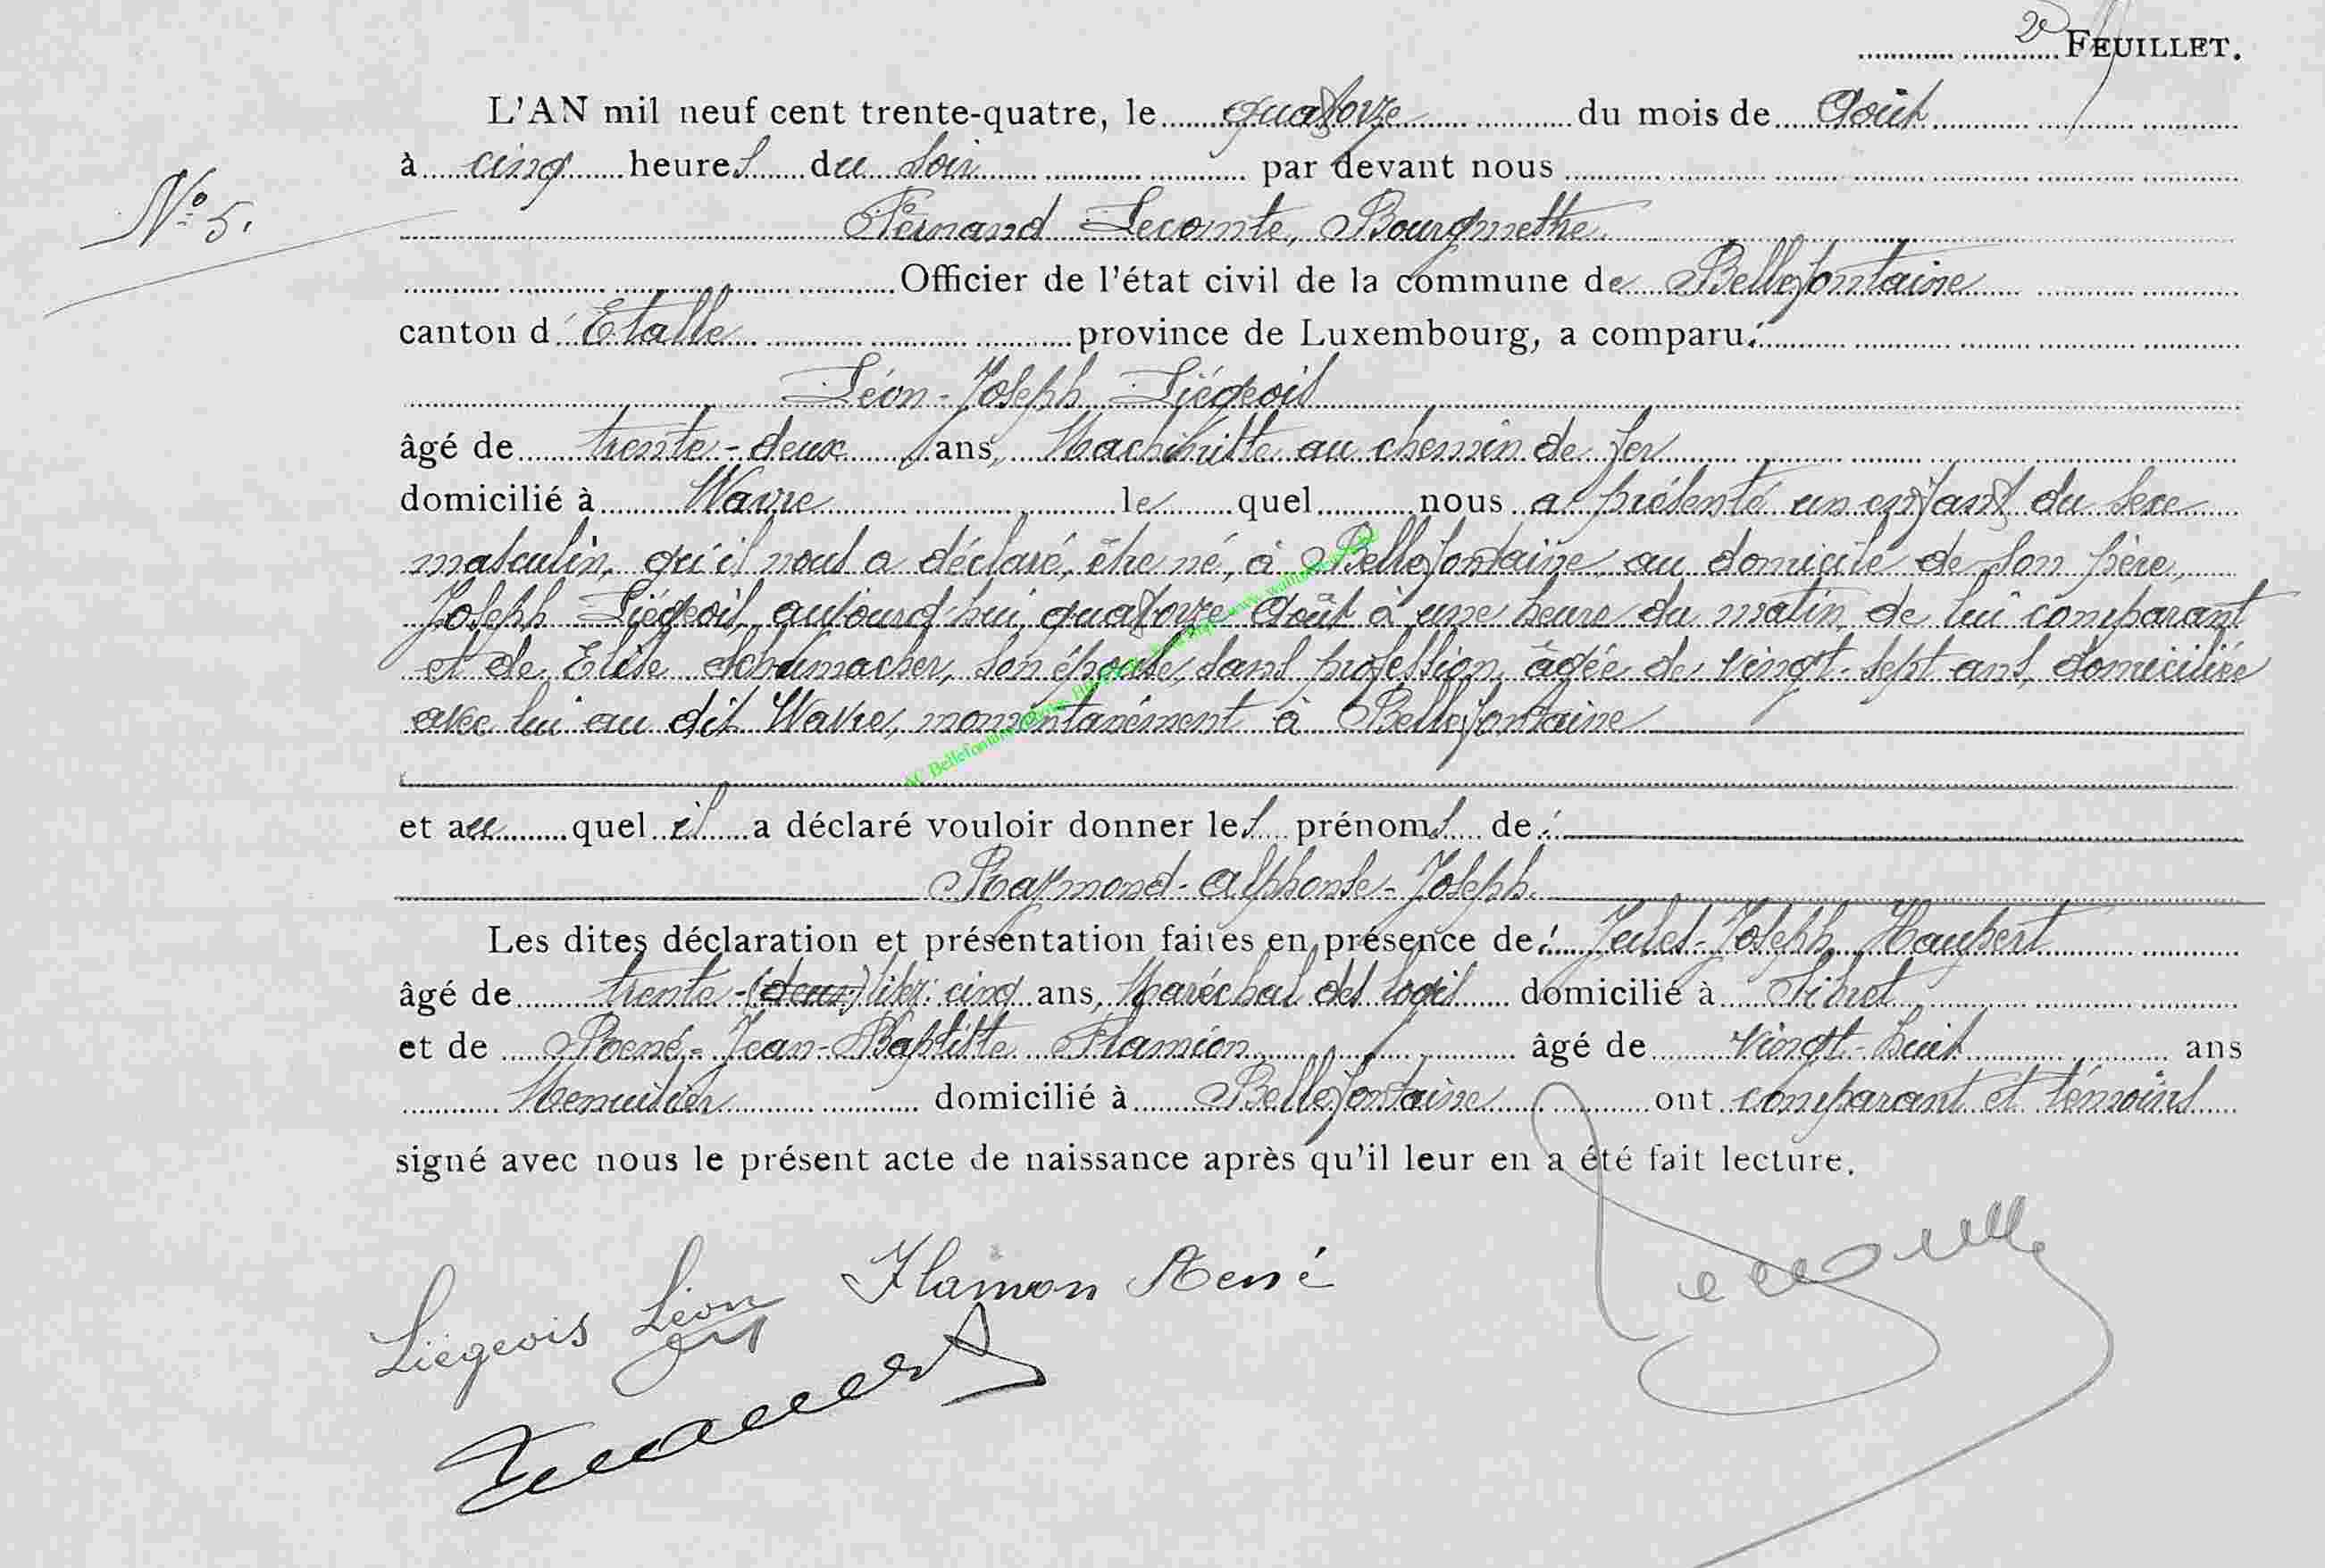 2e FEUILLET.
L'AN mil neuf cent trente-quatre, le quatorze du mois de Août
à cinq heures du soir par devant nous
N° 5.
Fernand Lecomte, Bourgmestre
Officier de l'état civil de la commune de Bellefontaine
canton d'Etalle province de Luxembourg, a comparu:
Léon-Joseph Liégeois
âgé de trente-deux ans, Machiniste au chemin de fer
domicilié à Wavre le quel nous a présenté un enfant du sexe
masculin, qu'il nous a déclaré, être né, à Bellefontaine, au domicile de son père,
Joseph Liégeois, aujourd'hui quatorze Août à une heure du matin, de lui comparant
et de Elise Schumacher, son épouse, sans profession, âgée de vingt-sept ans, domiciliée
avec lui au dit Wavre, momentanément à Bellefontaine
AC Bellefontaine
et au quel il a déclaré vouloir donner les prénoms de:
Raymond-Alphonse-Joseph.
Les dites déclaration et présentation faites en présence de: Jules-Joseph Haupert
âgé de trente-(deux) cinq ans, Maréchal des logis domicilié à Sibret
et de René-Jean-Baptiste Flamion âgé de vingt-huit ans
Menuisier domicilié à Bellefontaine ont comparant et témoins
signé avec nous le présent acte de naissance après qu'il leur en a été fait lecture.
Liégeois Léon Flamion René